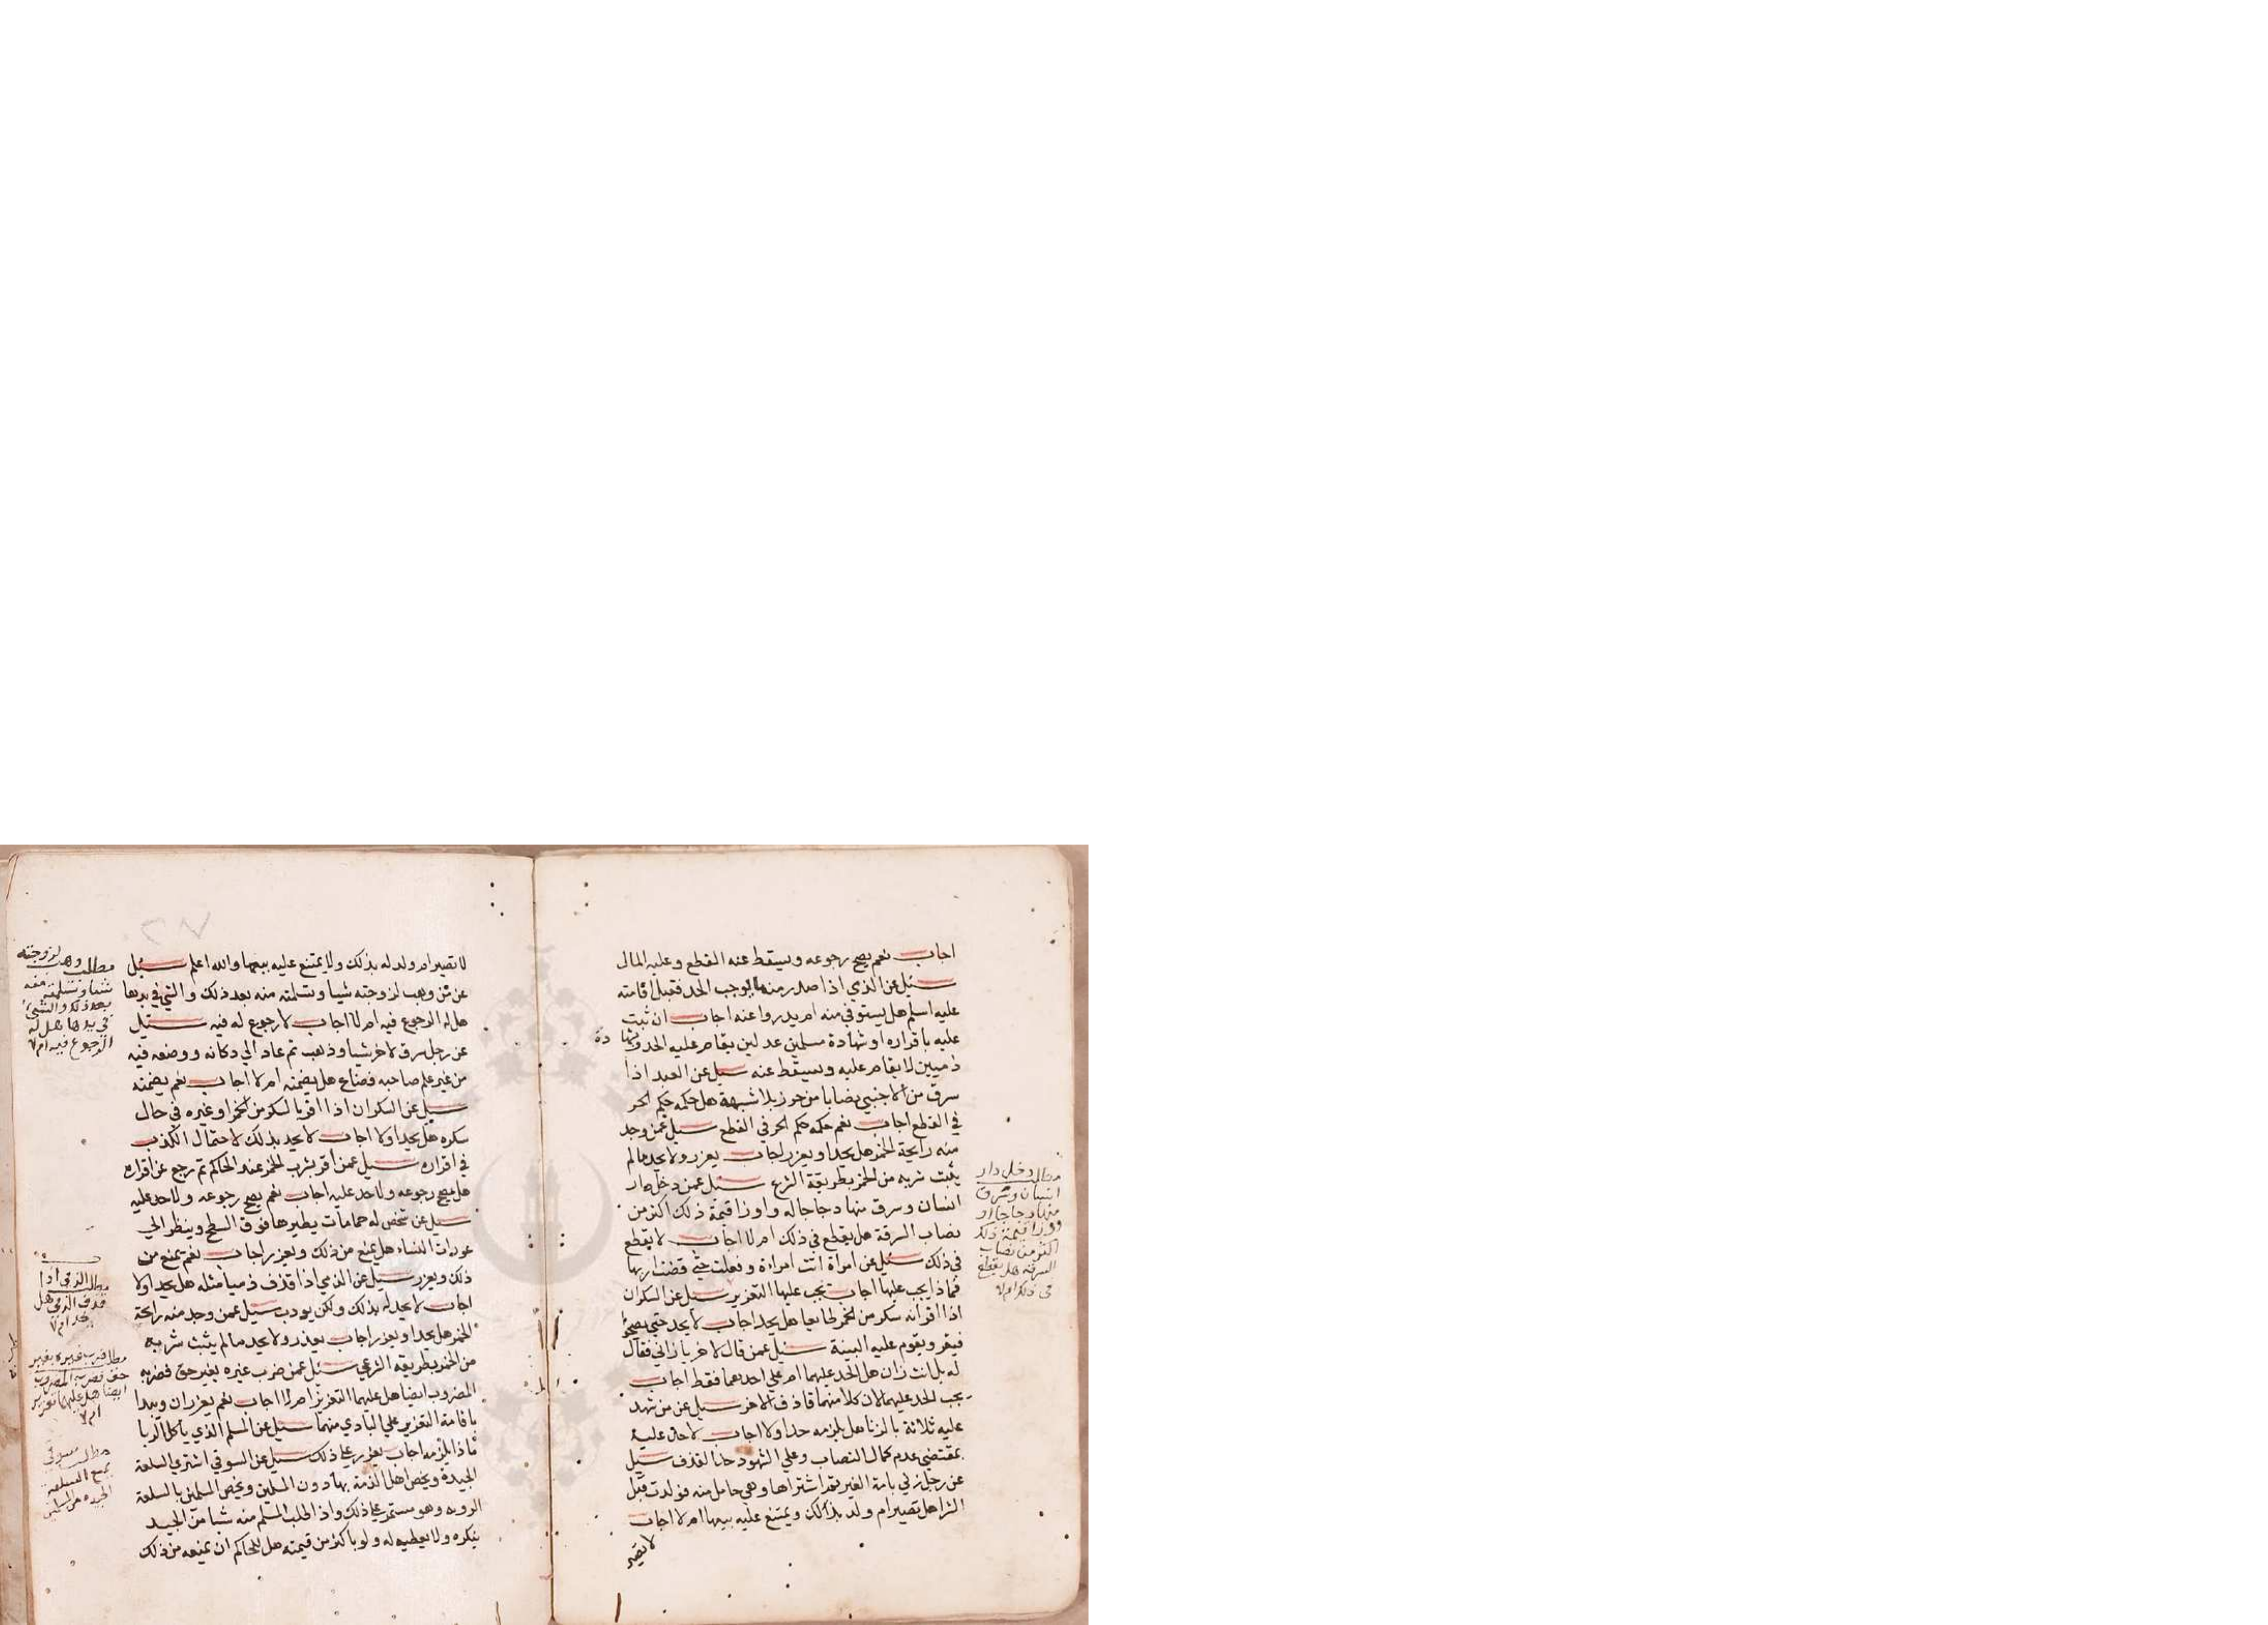 اجاب نعم يصح رجوعه ويسقط عنه القطع وعليه المال
سئيل عن الذي اذا صدر منه ما يوجب الحد فقبل اقامته
عليه اسلم هل يستوفي منه ام يدروا عنه اجاب ان ثبت
عليه باقراره او شهادة مسلمين عدلين يقام عليه الحد وبشهادة
ذميين لا يقام عليه ويسقط عنه سيل عن العبد اذا
سرق من الاجنبي نصابا من حرز بلا شبهة هل حكمه حكم الحر
في القطع اجاب نعم حكمه حكم الحر في القطع سيل عمن وجد
منه رايحة الخمر هل يحد او يعزر اجاب يعزر ولا يحد مالم
يثبت شربه من الخمر بطريقة الشرع سيل عمن دخل دار
انسان وسرق منها دجاجا له واوزا قيمة ذلك اكثر من
نصاب السرقة هل يقطع في ذلك ام لا اجاب لا يقطع
في ذلك سئيل عن امراة اتت امراءة وفعلت حتي قضت اربها
فماذا يجب عليها اجاب يجب عليها التعزير سيل عن السكران
اذا اقر انه سكر من الخمر طايعا هل يحد اجاب لا يحد حتي يصحو
فيقر ويقوم عليه البينة سئيل عمن قال لاخر يا زاني فقال
له بل انت زان هل الحد عليهما ام علي احدهما فقط اجاب
يجب الحد عليهما لان كلا منهما قاذف الاخر سيل عن من شهد
عليه ثلاثة بالزنا هل يلزمه حد او لا اجاب لا حد عليه
بمقتضي عدم كمال النصاب وعلي الشهود حد القذف سيل
عن رجل زني بامة الغير ثم اشتراها وهي حامل منه فولدت قبل
الشرا هل تصير ام ولد بذلك ويمتنع عليه بيعها ام لا اجاب
لا تصير
مطلب دخل دار
انسان وسرق
منها دجاجا او
ووزا قيمة ذلك
اكثر من نصاب
السرقة هل يقطع
في ذلك ام لا
لا تصير ام ولد له بذلك ولا يمتنع عليه بيعها والله اعلم سئيل
عن من وهب لزوجته شيا وتسلمته منه بعد ذلك والشي في يدها
هل له الرجوع فيه ام لا اجاب لا رجوع له فيه سئيل
عن رجل سرق لاخر شيا وذهب ثم عاد الي دكانه ووضعه فيه
من غير علم صاحبه فضاع هل يضمنه ام لا اجاب نعم يضمنه
سيل عن السكران اذا اقر بالسكر من الخمر او غيره في حال
سكره هل يحد او لا اجاب لا يحد بذلك لاحتمال الكذب
في اقراره سيل عمن اقر بشرب الخمر عند الحاكم ثم رجع عن اقراره
هل يصح رجوعه ولا حد عليه اجاب نعم يصح رجوعه ولا حد عليه
سيل عن شخص له حمامات يطيرها فوق السطح وينظر الي
عورات النساء هل يمنع من ذلك ويعزر اجاب نعم يمنع من
ذلك ويعزر سيل عن الذمي اذا قذف ذميا مثله هل يحد او لا
اجاب لا يحد له بذلك ولكن يودب سيل عمن وجد منه رايحة
الخمر هل يحد او يعزر اجاب يعذر ولا يحد مالم يثبت شربه
من الخمر بطريقه الشرعي سئل عمن ضرب غيره بغير حق فضربه
المضروب ايضا هل عليهما التعزير ام لا اجاب نعم يعزران ويبدا
باقامة التعزير علي البادي منهما سيل عن المسلم الذي ياكل الربا
ماذا يلزمه اجاب يعزر علي ذلك سيل عن السوقي اشتري السلعة
الجيدة ويخص اهل الذمة بها دون المسلمين ويخص المسلمين بالسلعة
الرديه وهو مستمر علي ذلك واذا طلب المسلم منه شيا من الجيد
ينكره ولا يعطيه له ولو باكثر من قيمته هل للحاكم ان يمنعه من ذلك
مطلب وهب لزوجته
شيا وتسلمته منه
بعد ذلك والشئ
في يدها هل له
الرجوع فيه ام لا
مطلب الذمي اذا
قذف الذمي هل
يحد ام لا
مطلب ضرب غيره بغير
حق فضربه المضروب
ايضا هل عليهما تعزير
ام لا
مطلب سوقي
يمنع السلعة
الجيده من المسلمين